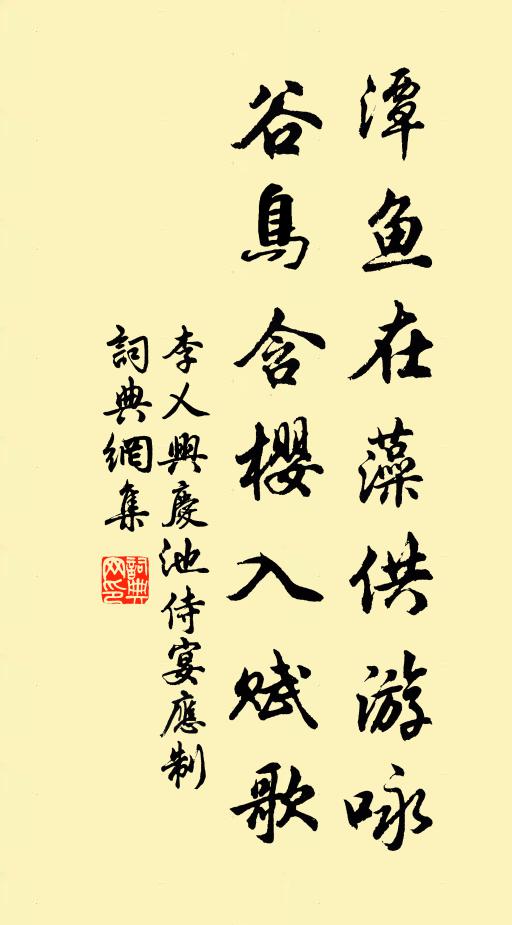 潭鱼在藻供游咏
谷鳥含櫻入赋歌
李乂興慶池侍宴應制
詞典網集
詞典網印